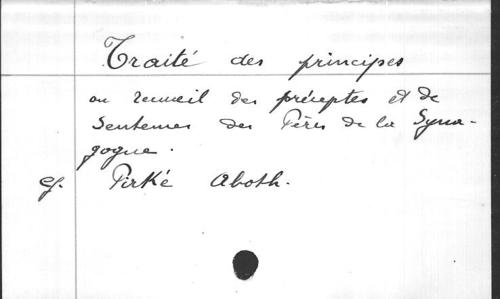 Traité des principes
ou recueil des préceptes et de
Sentences des Pères de la Syna-
gogue.
cf. Pirké Aboth.